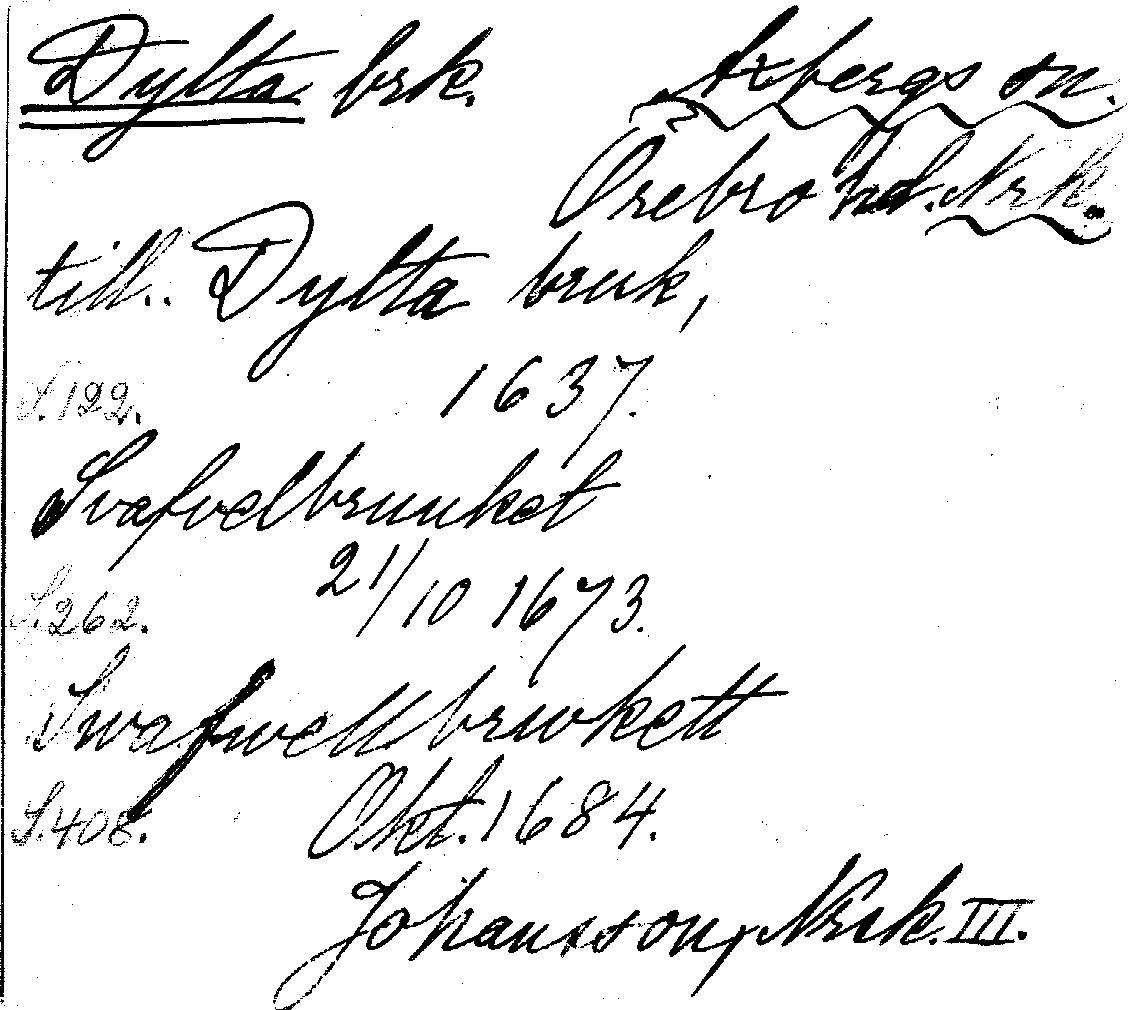 Dylta brk. Axbergs sn.
Örebro hd. Nrk.
till.. Dylta bruk,
S. 122. 1637.
Svafvelbruuket
S. 262. 21/10 1673.
Swafwellbrwkett
S. 408. Okt. 1684.
Johansson, Nrik. III.